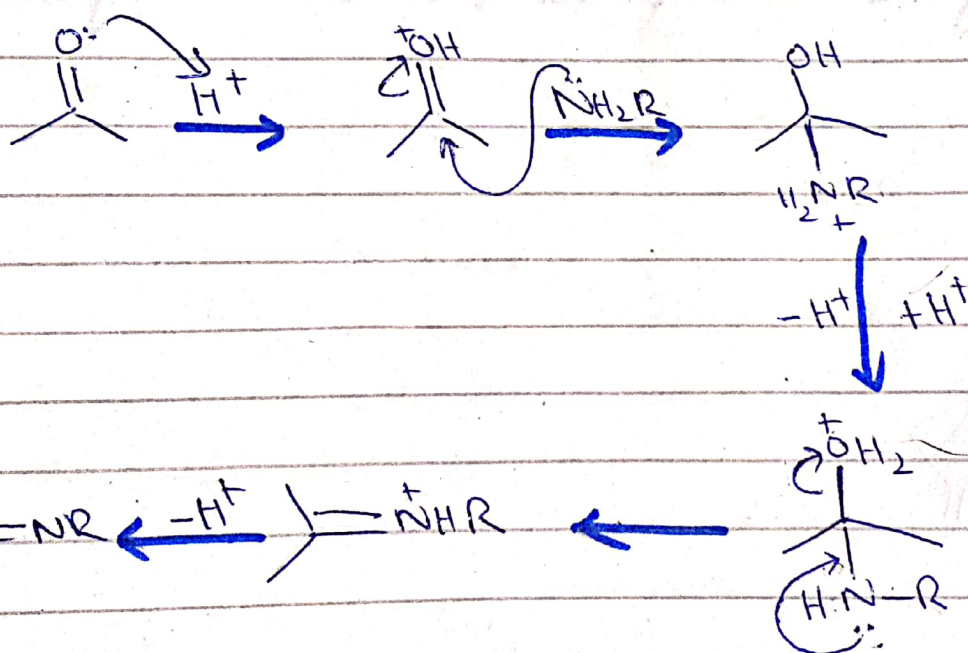 O:
H⁺
⁺OH
N̈H₂R
OH
H₂NR
+
-H⁺ +H⁺
⁺OH₂
H:N-R
=NR -H⁺ =N⁺HR